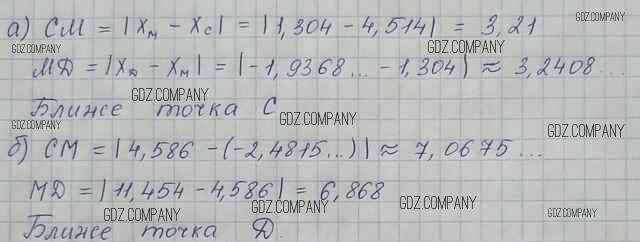 а) CM = |X_м − X_с| = |1,304 − 4,514| = 3,21
GDZ.COMPANY GDZ.COMPANY GDZ.COMPANY
MD = |X_D − X_м| = |−1,9368... − 1,304| ≈ 3,2408...
GDZ.COMPANY
Ближе точка C
GDZ.COMPANY GDZ.COMPANY GDZ.COMPANY
б) CM = |4,586 − (−2,4815...)| ≈ 7,0675...
MD = |11,454 − 4,586| = 6,868
GDZ.COMPANY GDZ.COMPANY GDZ.COMPANY GDZ.COMPANY
Ближе точка D.
GDZ.COMPANY